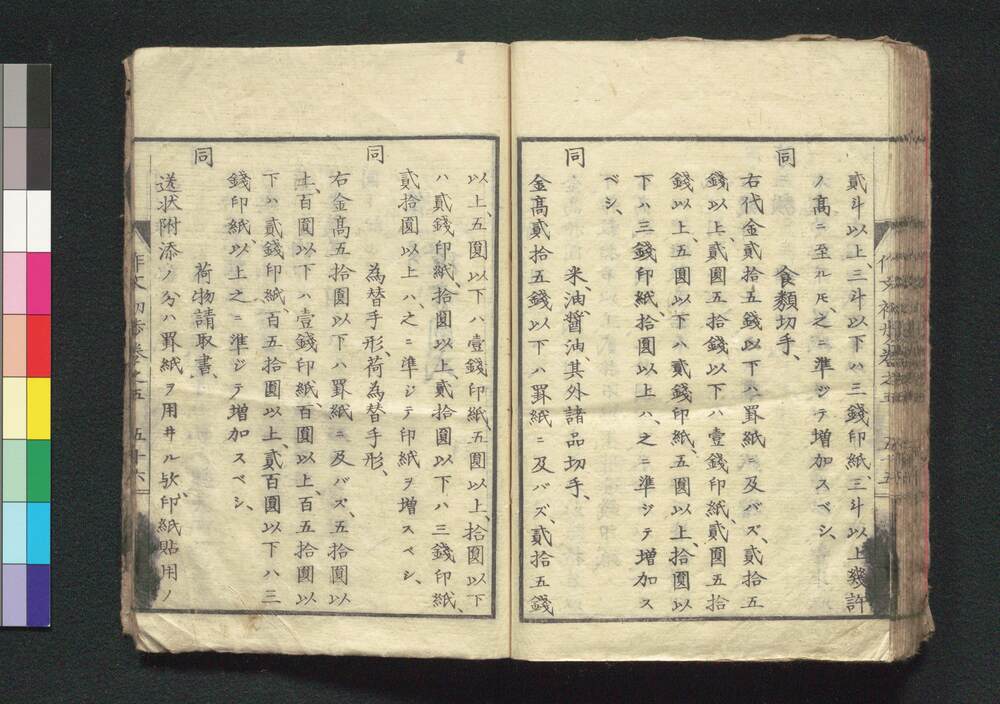 貳斗以上三斗以下ハ三錢印紙、三斗以上幾許
ノ髙ニ至ルㇳモ、之ニ準ジテ増加スベシ、
同　食麵切手、
右代金貳拾五錢以下ハ罫紙ニ及バズ、貳拾五
錢以上、貳圓五拾錢以下ハ壹錢印紙、貳圓五拾
錢以上、五圓以下ハ貳錢印紙、五圓以上、拾圓以
下ハ三錢印紙、拾圓以上ハ、之ニ準ジテ増加ス
ベシ、
同　米、油、醤油、其外諸品切手、
金髙貳拾五錢以下ハ罫紙ニ及バズ、貳拾五錢
以上、五圓以下ハ壹錢印紙、五圓以上、拾圓以下
ハ貳錢印紙、拾圓以上、貳拾圓以下ハ三錢印紙、
貳拾圓以上ハ、之ニ準ジテ印紙ヲ増スベシ、
同　為替手形、荷為替手形、
右金髙五拾圓以下ハ罫紙ニ及バズ、五拾圓以
上、百圓以下ハ壹錢印紙、百圓以上、百五拾圓以
下ハ貳錢印紙、百五拾圓以上、貳百圓以下ハ三
錢印紙、以上之ニ準ジテ増加スベシ、
同　荷物請取書、
送状附添ノ分ハ罫紙ヲ用井ル欤、印紙貼用ノ
五十六